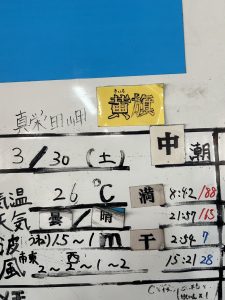 真栄田岬
きいろ
黄旗
中潮
3/30(土)
気温 26℃ 満 8:42 188
天気 曇/晴 21:57 165
波 1.5～1m 干 2:54 7
風 2～2～1～2 15:21 28